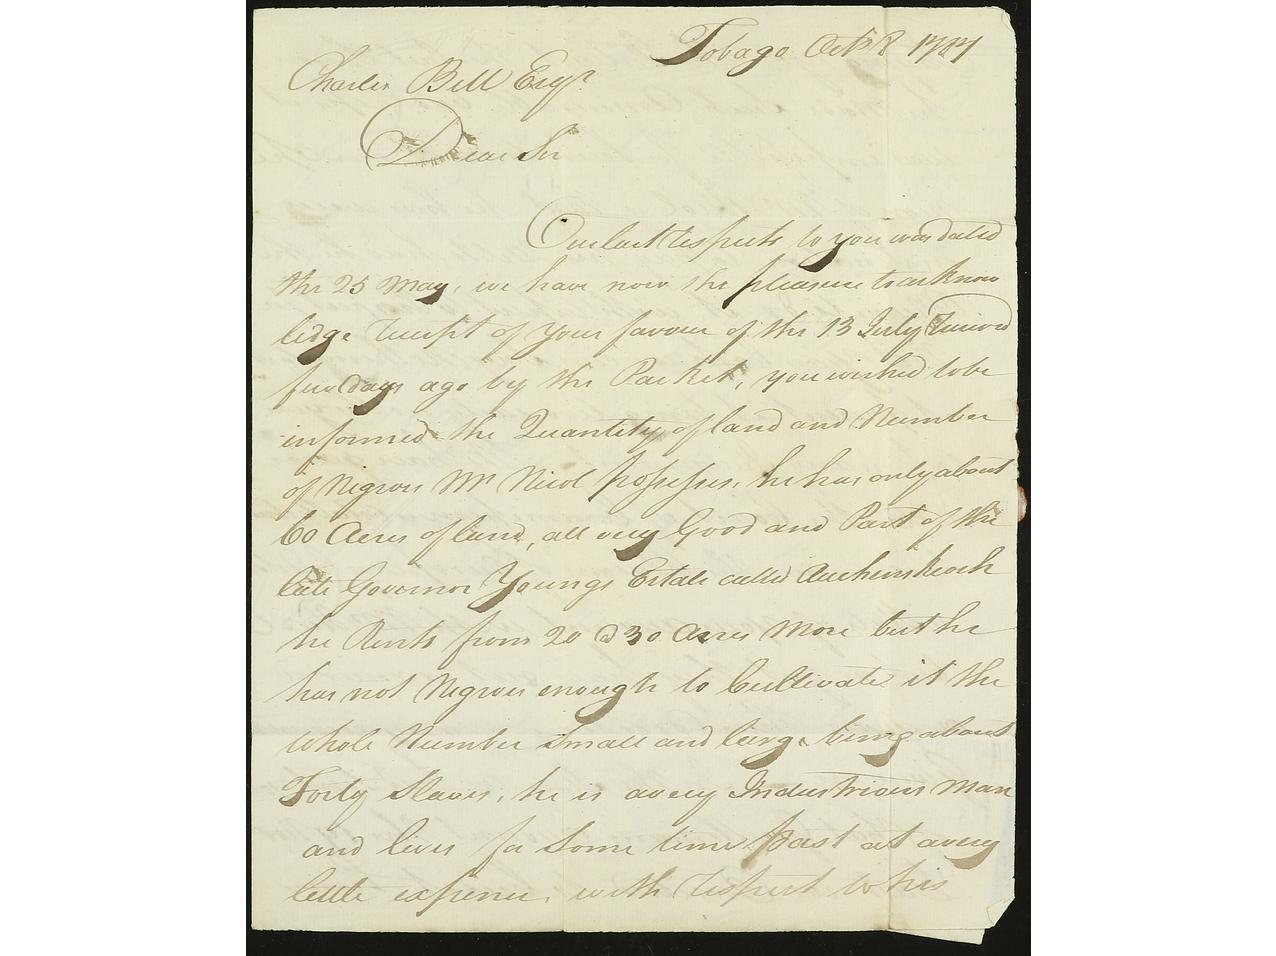 Tobago Octr 8 1787
Charles Bell Esqr
Dear Sir
Our last respects to you was dated
the 25 May, we have now the pleasure to acknow
ledge receipt of your favour of the 13 July received
few days ago by the Packet, you wished to be
informed the Quantity of land and Number
of Negroes Mr Nicol possesses, he has only about
60 Acres of land, all very Good and Part of the
late Governor Youngs Estate called Auchenskeoch
he Rents from 20 a 30 Acres More but he
has not Negroes enough to Cultivate it the
whole Number Small and large being about
Forty Slaves, he is a very Industrious Man
and lives for Some time past at a very
little expence, with respect to his